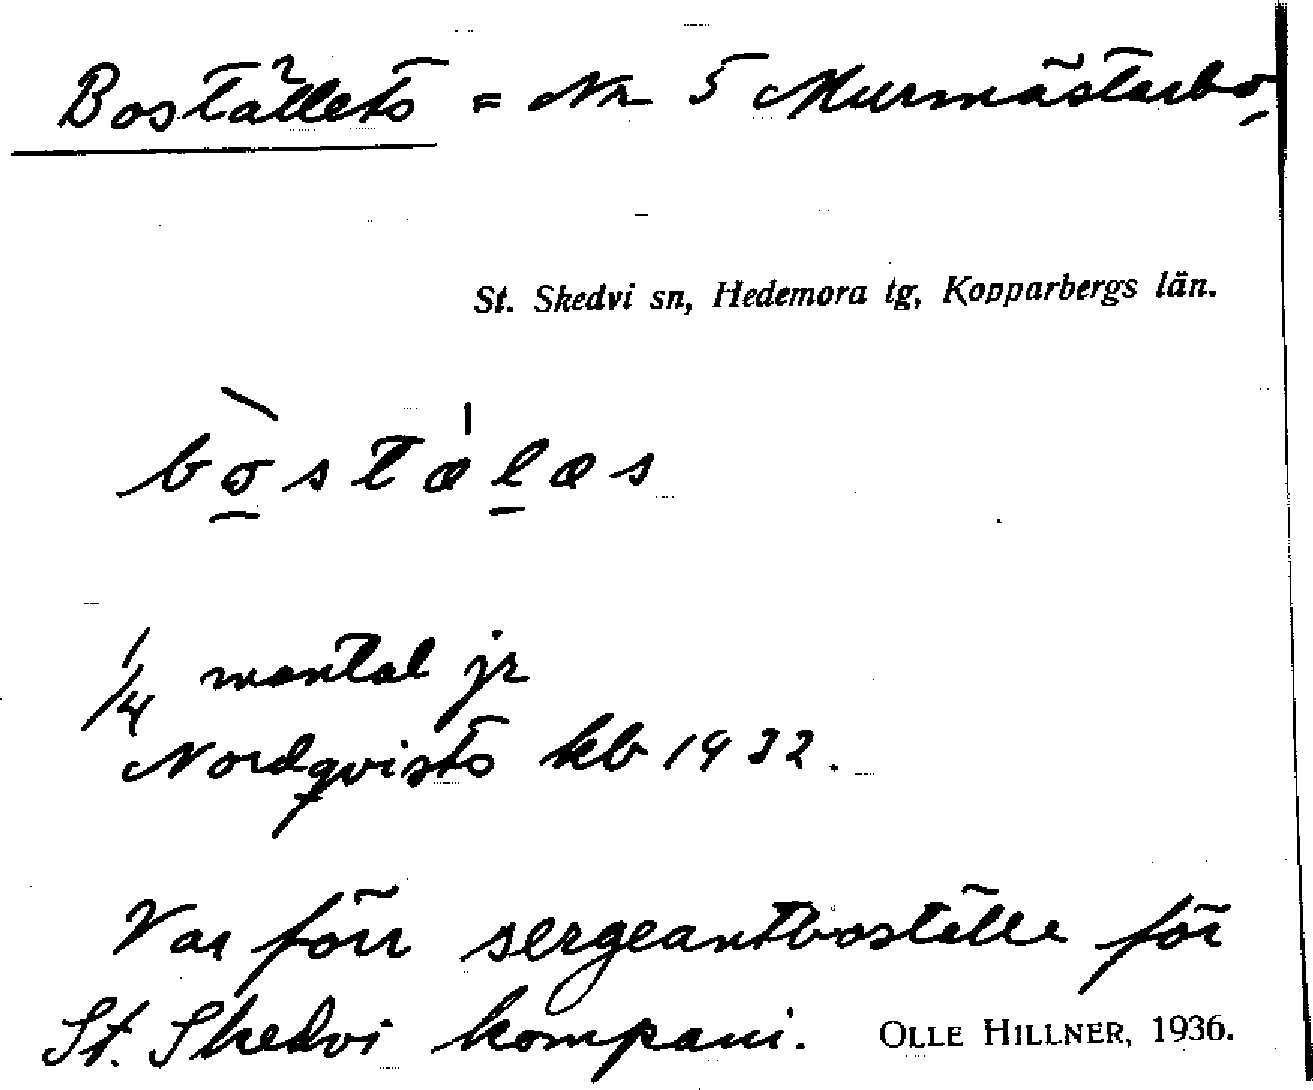 Boställets = Nr 5 Murmästarbo
St. Skedvi sn, Hedemora tg, Kopparbergs län.
bòstælæs
1/4 mantal jr
Nordqvists kb 1932.
Var förr sergeantboställe för
St. Skedvi kompani. OLLE HILLNER, 1936.